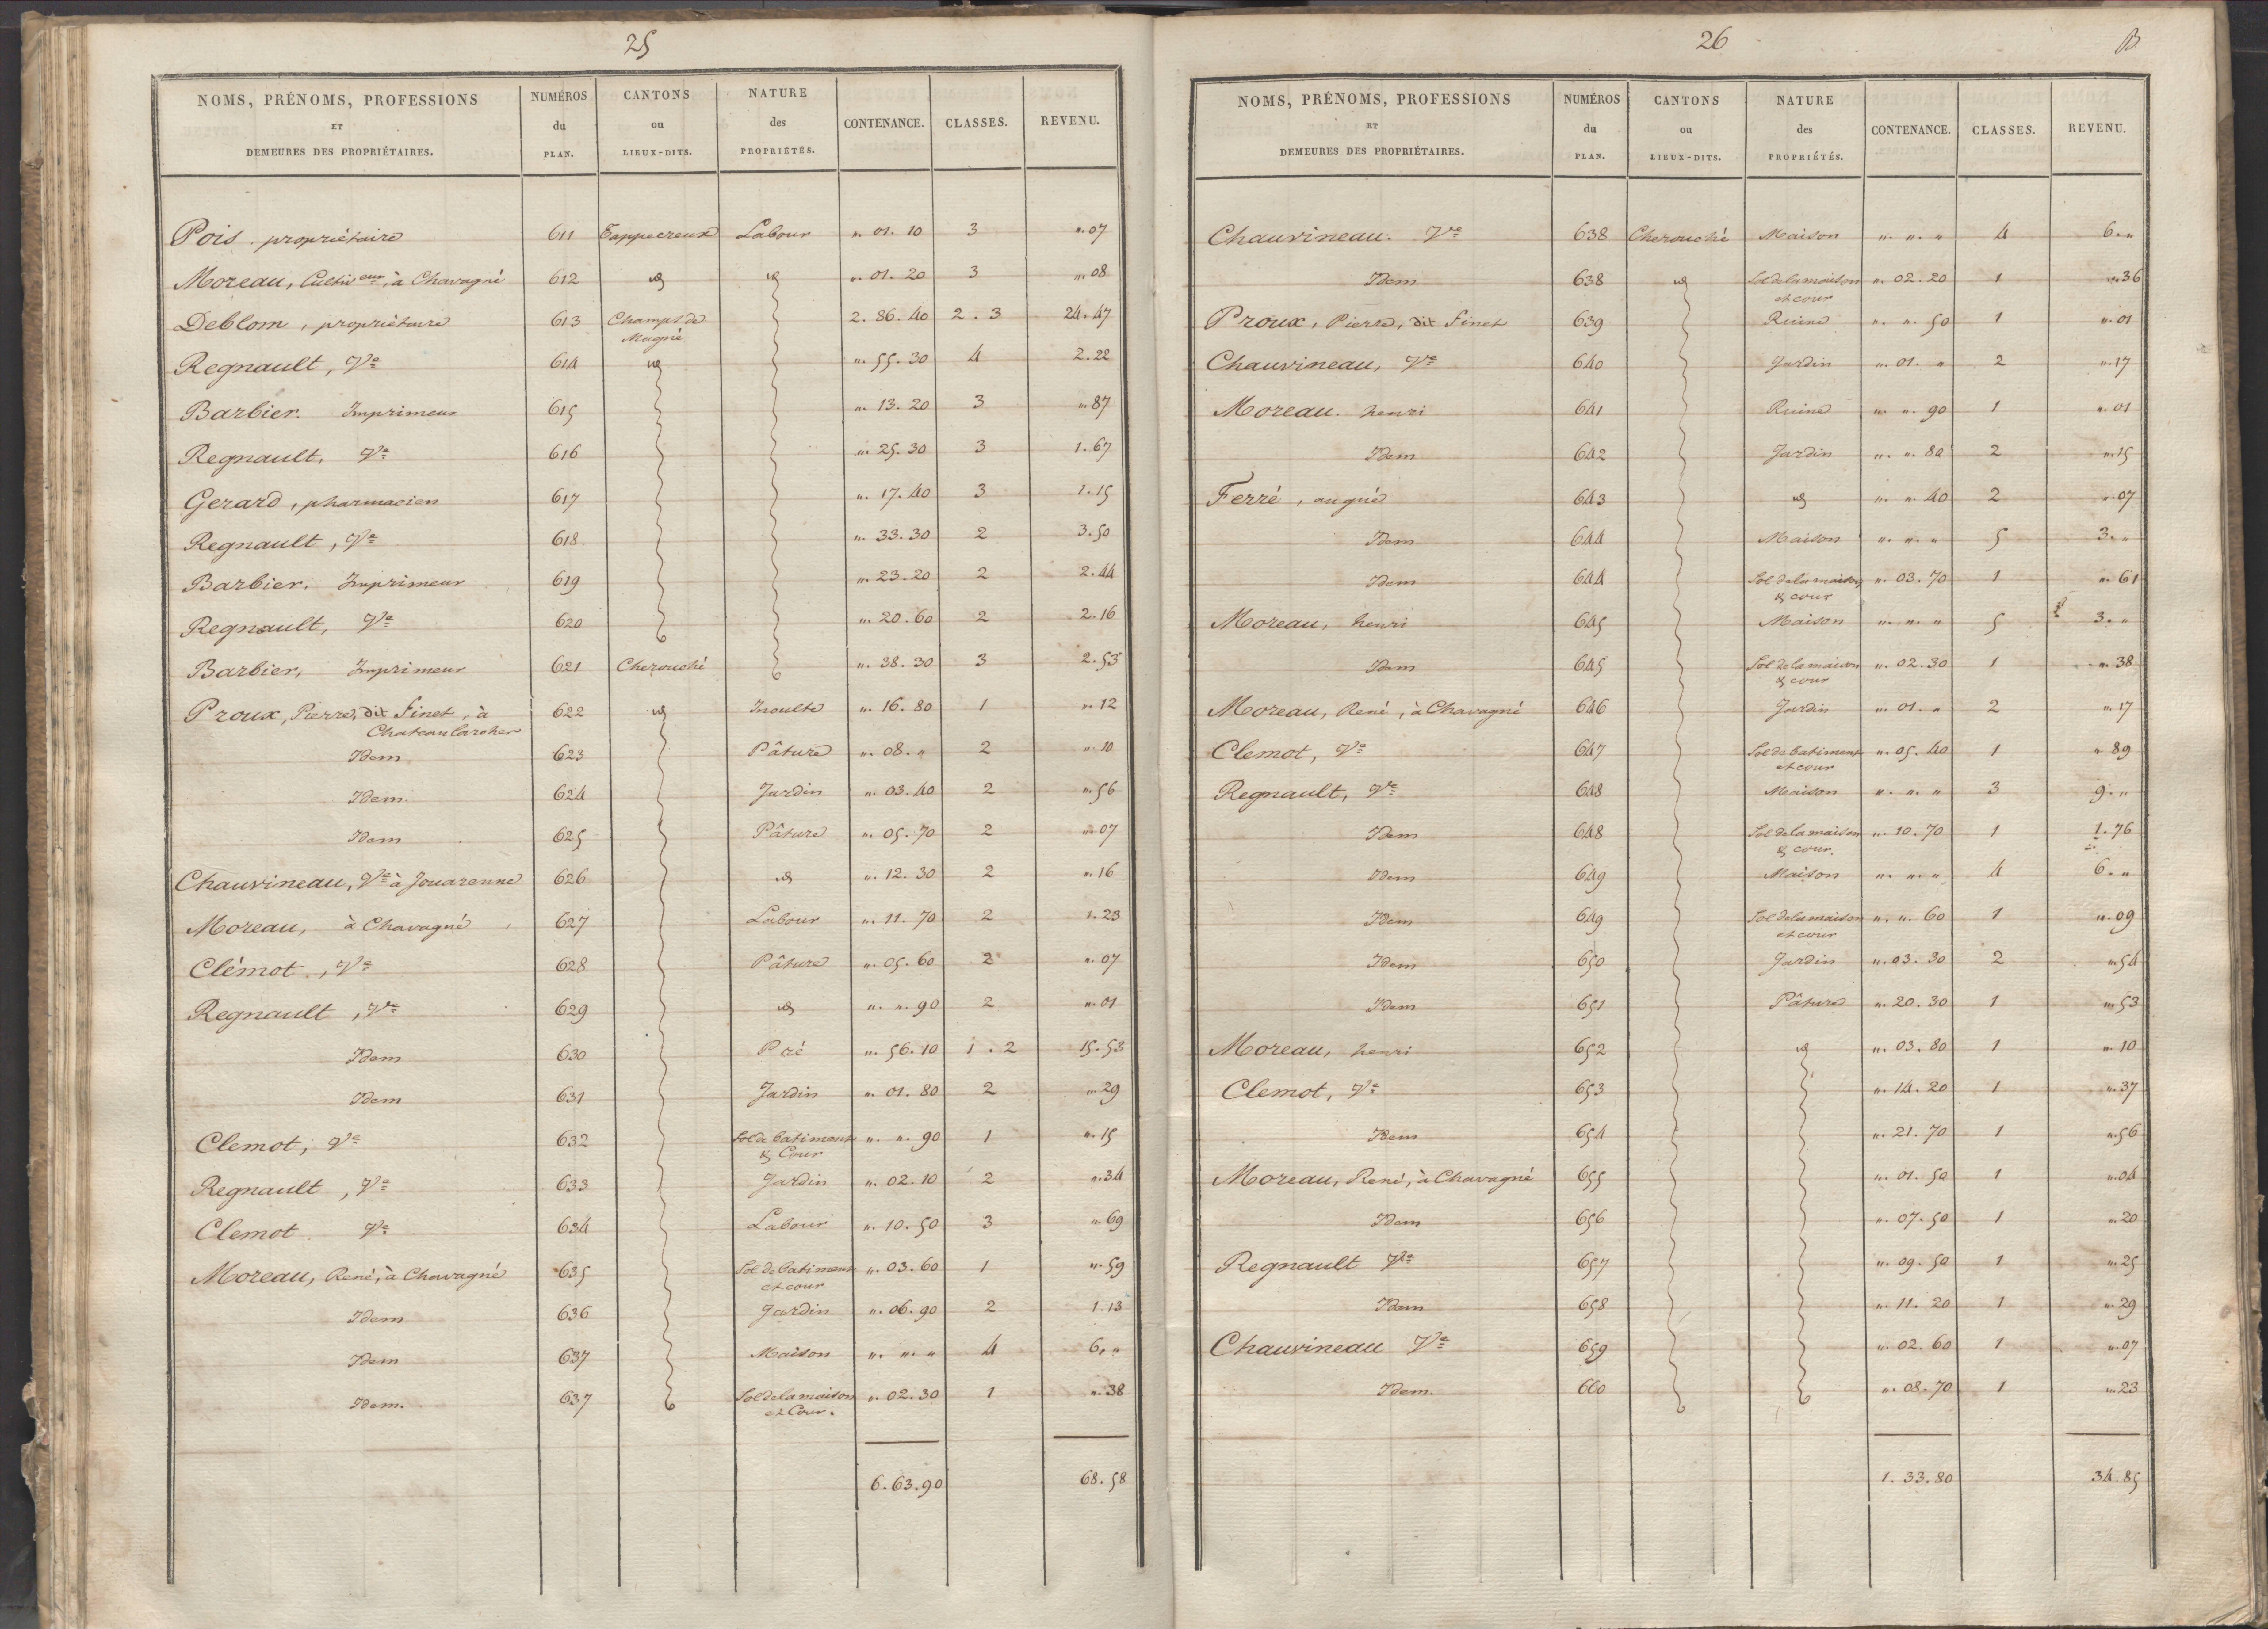 25
NOMS, PRÉNOMS, PROFESSIONS ET DEMEURES DES PROPRIÉTAIRES. | NUMÉROS du PLAN. | CANTONS ou LIEUX-DITS. | NATURE des PROPRIÉTÉS. | CONTENANCE. | CLASSES. | REVENU.
Pois. propriétaire 611 Tappecreux Labour ". 01. 10 3 ".07
Moreau, Cultiv.eur, à Chavagné 612 id id ". 01. 20 3 ".08
Deblom, propriétaire 613 Champs de Magné 2. 86. 40 2. 3 24.47
Regnault, Ve 614 id ". 55. 30 4 2.22
Barbier. Imprimeur 615 ". 13. 20 3 ".87
Regnault, Ve 616 ". 25. 30 3 1.67
Gerard, pharmacien 617 ". 17. 40 3 1.15
Regnault, Ve 618 ". 33. 30 2 3.50
Barbier. Imprimeur 619 ". 23. 20 2 2.44
Regnault, Ve 620 ". 20. 60 2 2.16
Barbier, Imprimeur 621 Cherouché ". 38. 30 3 2.53
Proux, Pierre, dit finet, à Chateaularcher 622 id Inculte ". 16. 80 1 ".12
Idem 623 Pâture ". 08. " 2 ".10
Idem. 624 Jardin ". 03. 40 2 ".56
Idem 625 Pâture ". 05. 70 2 ".07
Chauvineau, Ve à Jouarenne 626 id ". 12. 30 2 ".16
Moreau, à Chavagné 627 Labour ". 11. 70 2 1.23
Clémot, Ve 628 Pâture ". 05. 60 2 ".07
Regnault, Ve 629 id ". ". 90 2 ".01
Idem 630 Pré ". 56. 10 1. 2 15.53
Idem 631 Jardin ". 01. 80 2 ".29
Clemot, Ve 632 Sol de batiment & Cour ". ". 90 1 ".15
Regnault, Ve 633 Jardin ". 02. 10 2 ".34
Clemot Ve 634 Labour ". 10. 50 3 ".69
Moreau, René, à Chavagné 635 Sol de batiment et cour ". 03. 60 1 ".59
Idem 636 Jardin ". 06. 90 2 1.13
Idem 637 Maison ". ". " 4 6."
Idem. 637 Sol de la maison et Cour. ". 02. 30 1 ".38
6. 63. 90 68.58
26
B
NOMS, PRÉNOMS, PROFESSIONS ET DEMEURES DES PROPRIÉTAIRES. | NUMÉROS du PLAN. | CANTONS ou LIEUX-DITS. | NATURE des PROPRIÉTÉS. | CONTENANCE. | CLASSES. | REVENU.
Chauvineau. Ve 638 Cherouché Maison ". ". " 4 6."
Idem 638 id Sol de la maison et cour ". 02. 20 1 ".36
Proux, Pierre, dit finet 639 Ruine ". ". 50 1 ".01
Chauvineau, Ve 640 Jardin ". 01. " 2 ".17
Moreau. henri 641 Ruine ". ". 90 1 ".01
Idem 642 Jardin ". ". 80 2 ".15
Ferré, augué 643 id ". ". 40 2 ".07
Idem 644 Maison ". ". " 5 3."
Idem 644 Sol de la maison & cour ". 03. 70 1 ".61
Moreau, henri 645 Maison ". ". " 5 3."
Idem 645 Sol de la maison & cour ". 02. 30 1 ".38
Moreau, René, à Chavagné 646 Jardin ". 01. " 2 ".17
Clemot, Ve 647 Sol de batiment et cour ". 05. 40 1 ".89
Regnault, Ve 648 Maison ". ". " 3 9."
Idem 648 Sol de la maison & cour. ". 10. 70 1 1.76
Idem 649 Maison ". ". " 4 6."
Idem 649 Sol de la maison et cour ". ". 60 1 ".09
Idem 650 Jardin ". 03. 30 2 ".54
Idem 651 Pâture ". 20. 30 1 ".53
Moreau, henri 652 id ". 03. 80 1 ".10
Clemot, Ve 653 ". 14. 20 1 ".37
Idem 654 ". 21. 70 1 ".56
Moreau, René, à Chavagné 655 ". 01. 50 1 ".04
Idem 656 ". 07. 50 1 ".20
Regnault Ve 657 ". 09. 50 1 ".25
Idem 658 ". 11. 20 1 ".29
Chauvineau Ve 659 ". 02. 60 1 ".07
Idem. 660 ". 08. 70 1 ".23
1. 33. 80 34.85